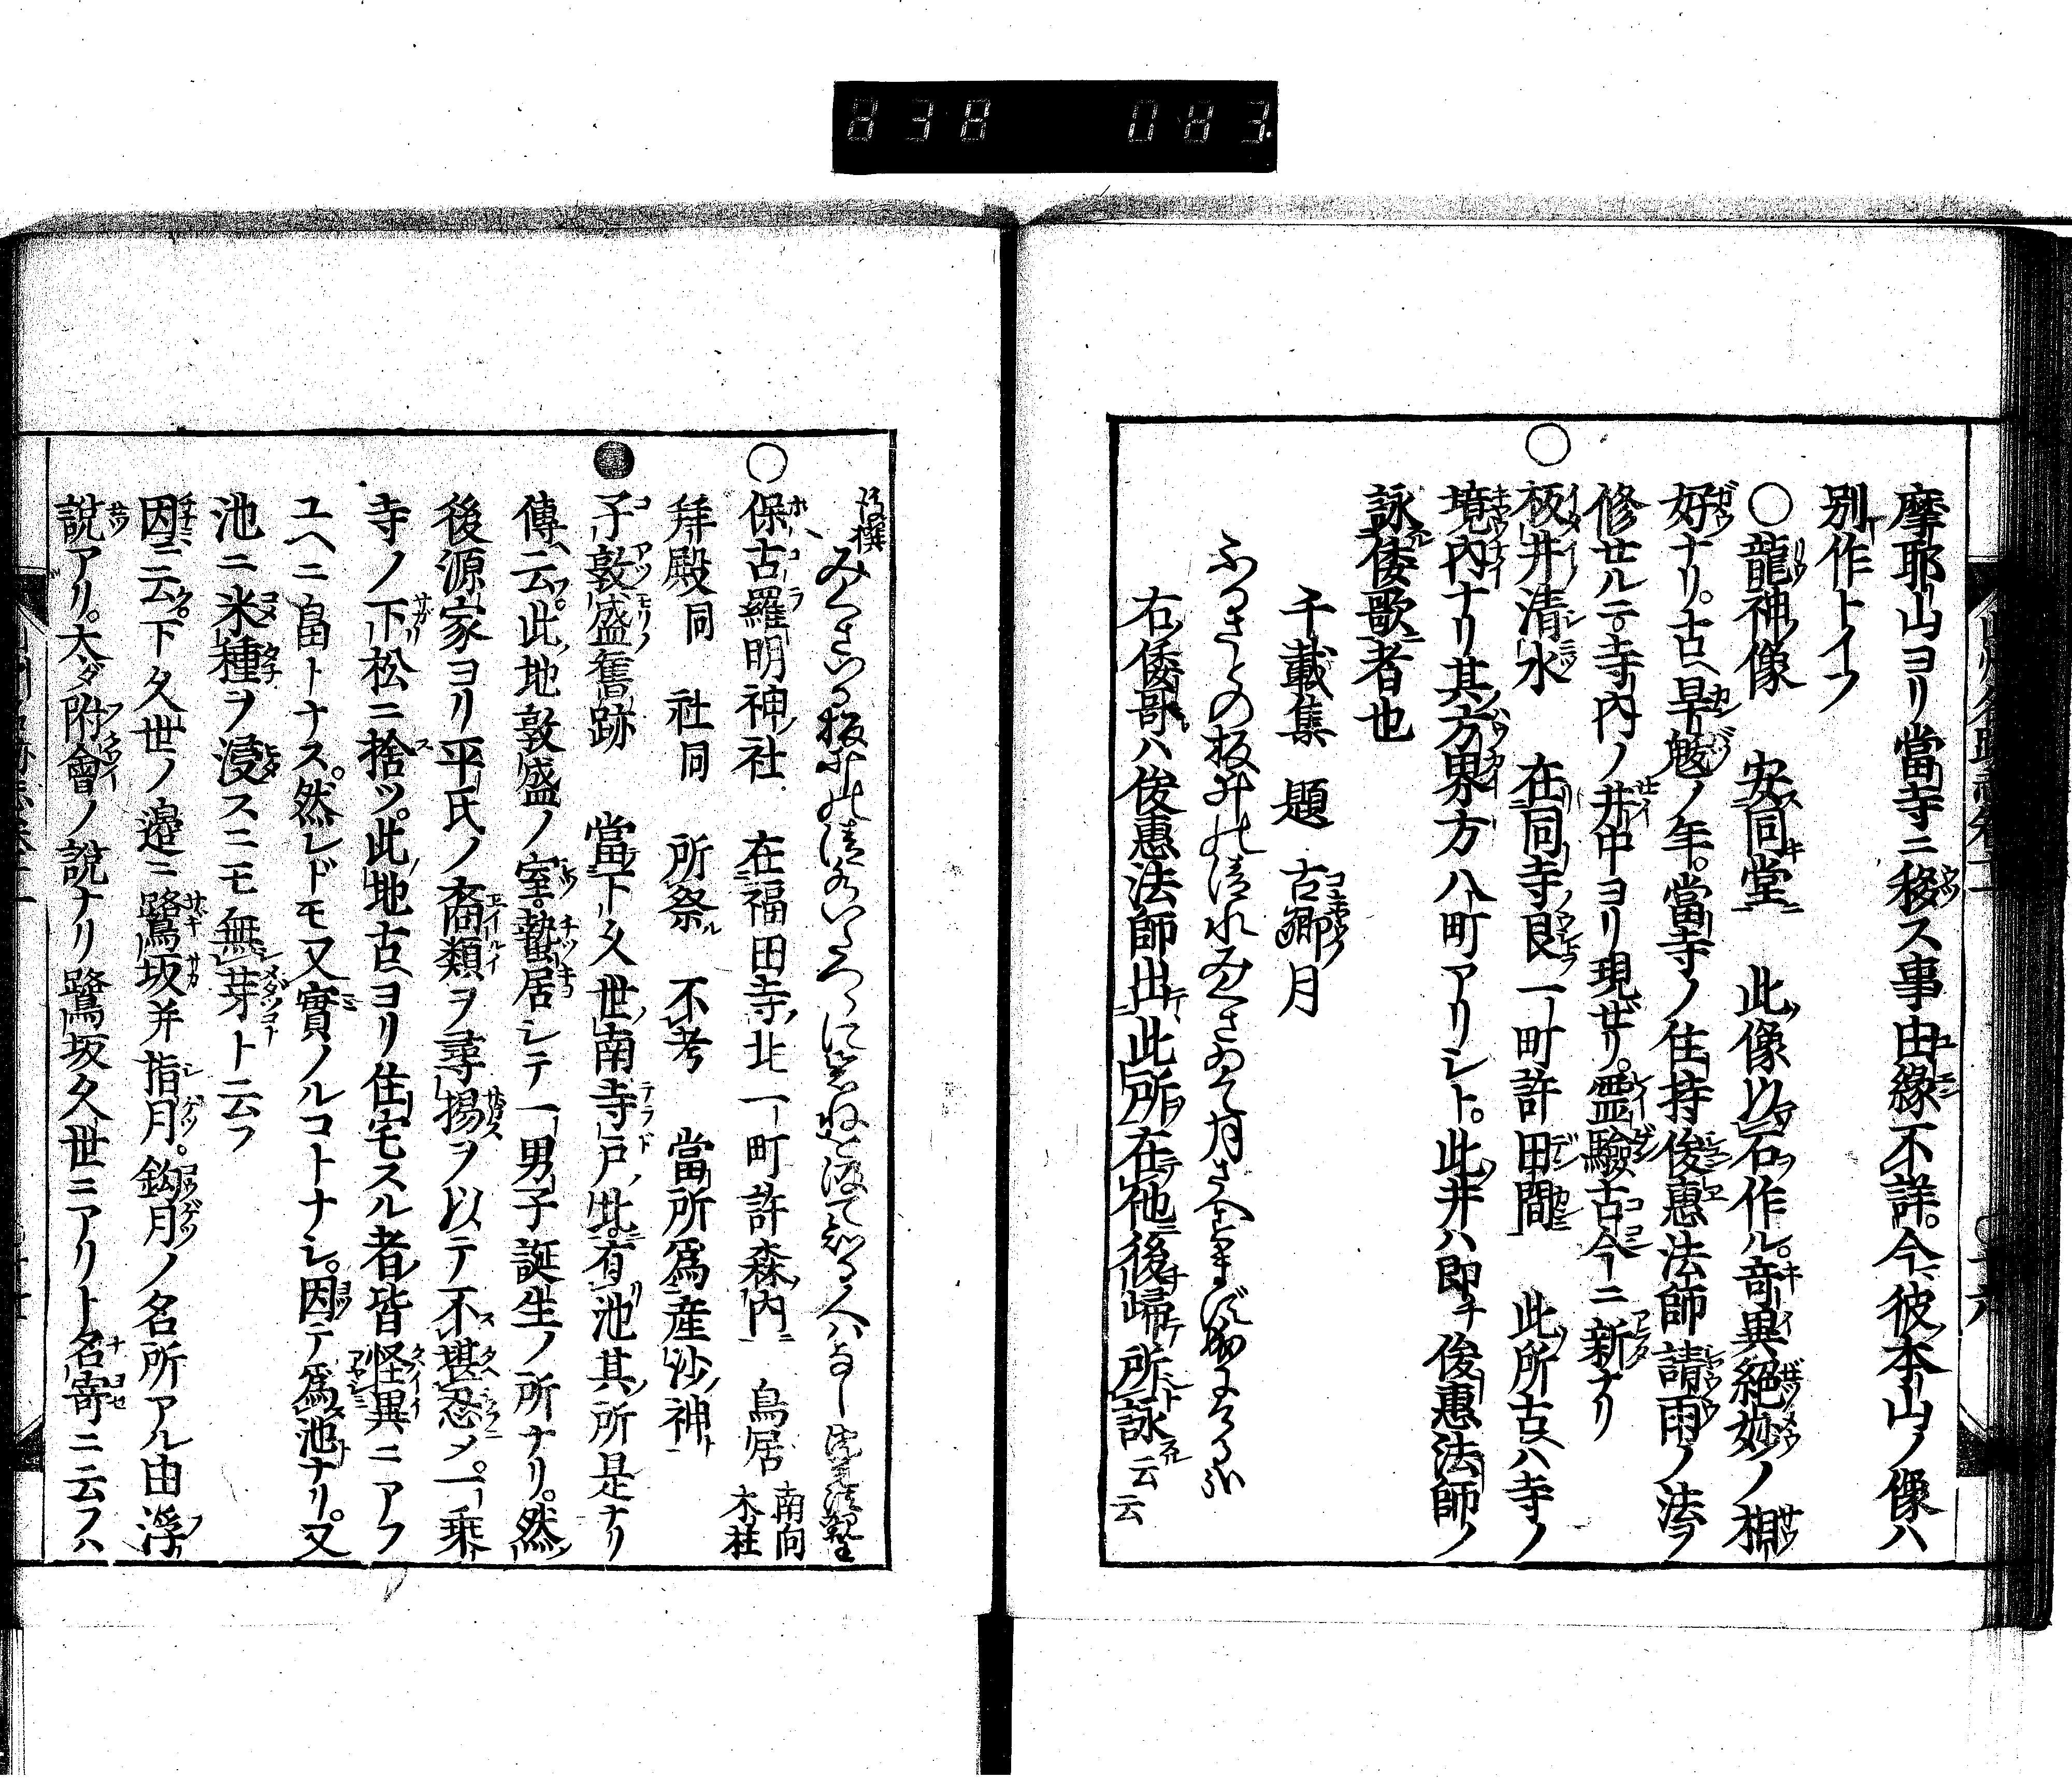 摩耶山ヨリ當寺ニ移ス事由緣不詳。今彼本山ノ像ハ
別作トイフ
○龍神像 安同堂 此像以石作ル。奇異絕妙ノ相
好ナリ。古早魃ノ年。當寺ノ住持俊惠法師請雨ノ法ヲ
修セルニ寺内ノ井中ヨリ現ゼリ。霊驗古今ニ新ナリ
○板井清水 在同寺艮一町許田間 此所古ハ寺ノ
境内ナリ其方界方八町アリシト。此井ハ即チ俊惠法師ノ
詠倭歌者也
千載集 題 古郷月
ふるさとの板井の清水みくさゐて月さへすまず成にける哉
右倭哥ハ俊惠法師出此所在他後歸所詠云云
みくさゐる板井の清水
○保古羅明神社 在福田寺北一町許森内 鳥居 南向 木柱
拜殿同 社同 所祭 不考 當所爲産沙神
●子敦盛舊跡 當下久世南寺戸北有池其所是ナリ
傳云。此地敦盛ノ室蟄居シテ一男子誕生ノ所ナリ。然
後源家ヨリ平氏ノ裔類ヲ尋搦ヲ以テ不堪忍〆。一乘
寺ノ下松ニ捨ツ。此地古ヨリ住宅スル者皆怪異ニアフ
ユヘニ畠トナス。然レドモ又實ノルコトナシ。因テ爲池ナリ。又
池ニ米種ヲ浸スニモ無芽ト云フ
因ニ云。下久世ノ邉ニ鷺坂并指月。鈎月ノ名所アル由浮
說アリ。大ダ附會ノ說ナリ鷺坂久世ニアリト名寄ニ云フハ